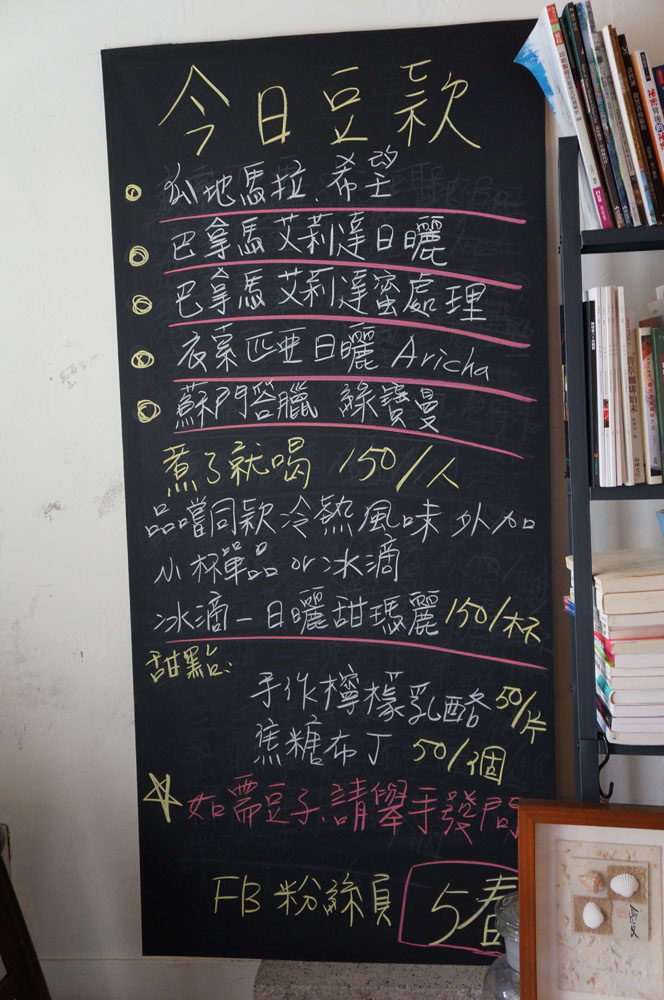 今日豆款
瓜地馬拉、希望
巴拿馬艾莉達日曬
巴拿馬艾莉達蜜處理
衣索匹亞日曬 Aricha
蘇門答臘 綠寶曼
煮了就喝 150/人
品嚐同款冷熱風味 外加
小杯單品 or 冰滴
冰滴-日曬甜瑪麗 150/杯
甜點:
手作檸檬乳酪 50/片
焦糖布丁 50/個
如需豆子請舉手發問
FB 粉絲頁 5春